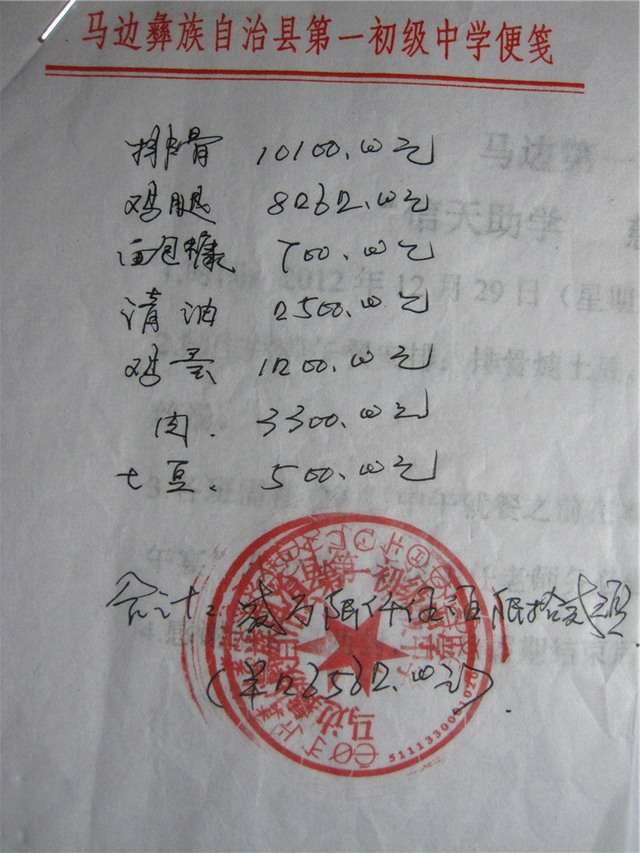 马边彝族自治县第一初级中学便笺
排骨 10100.00元
鸡腿 8262.00元
面包糠 700.00元
清油 2500.00元
鸡蛋 1200.00元
肉. 3300.00元
土豆. 500.00元
合计: 贰万陆仟伍佰陆拾贰圆.
(￥26562.00元).
马边彝族自治县第一初级中学
马边第一
信天助学
2012年12月29日（星期
排骨炖土豆
中午就餐之前在